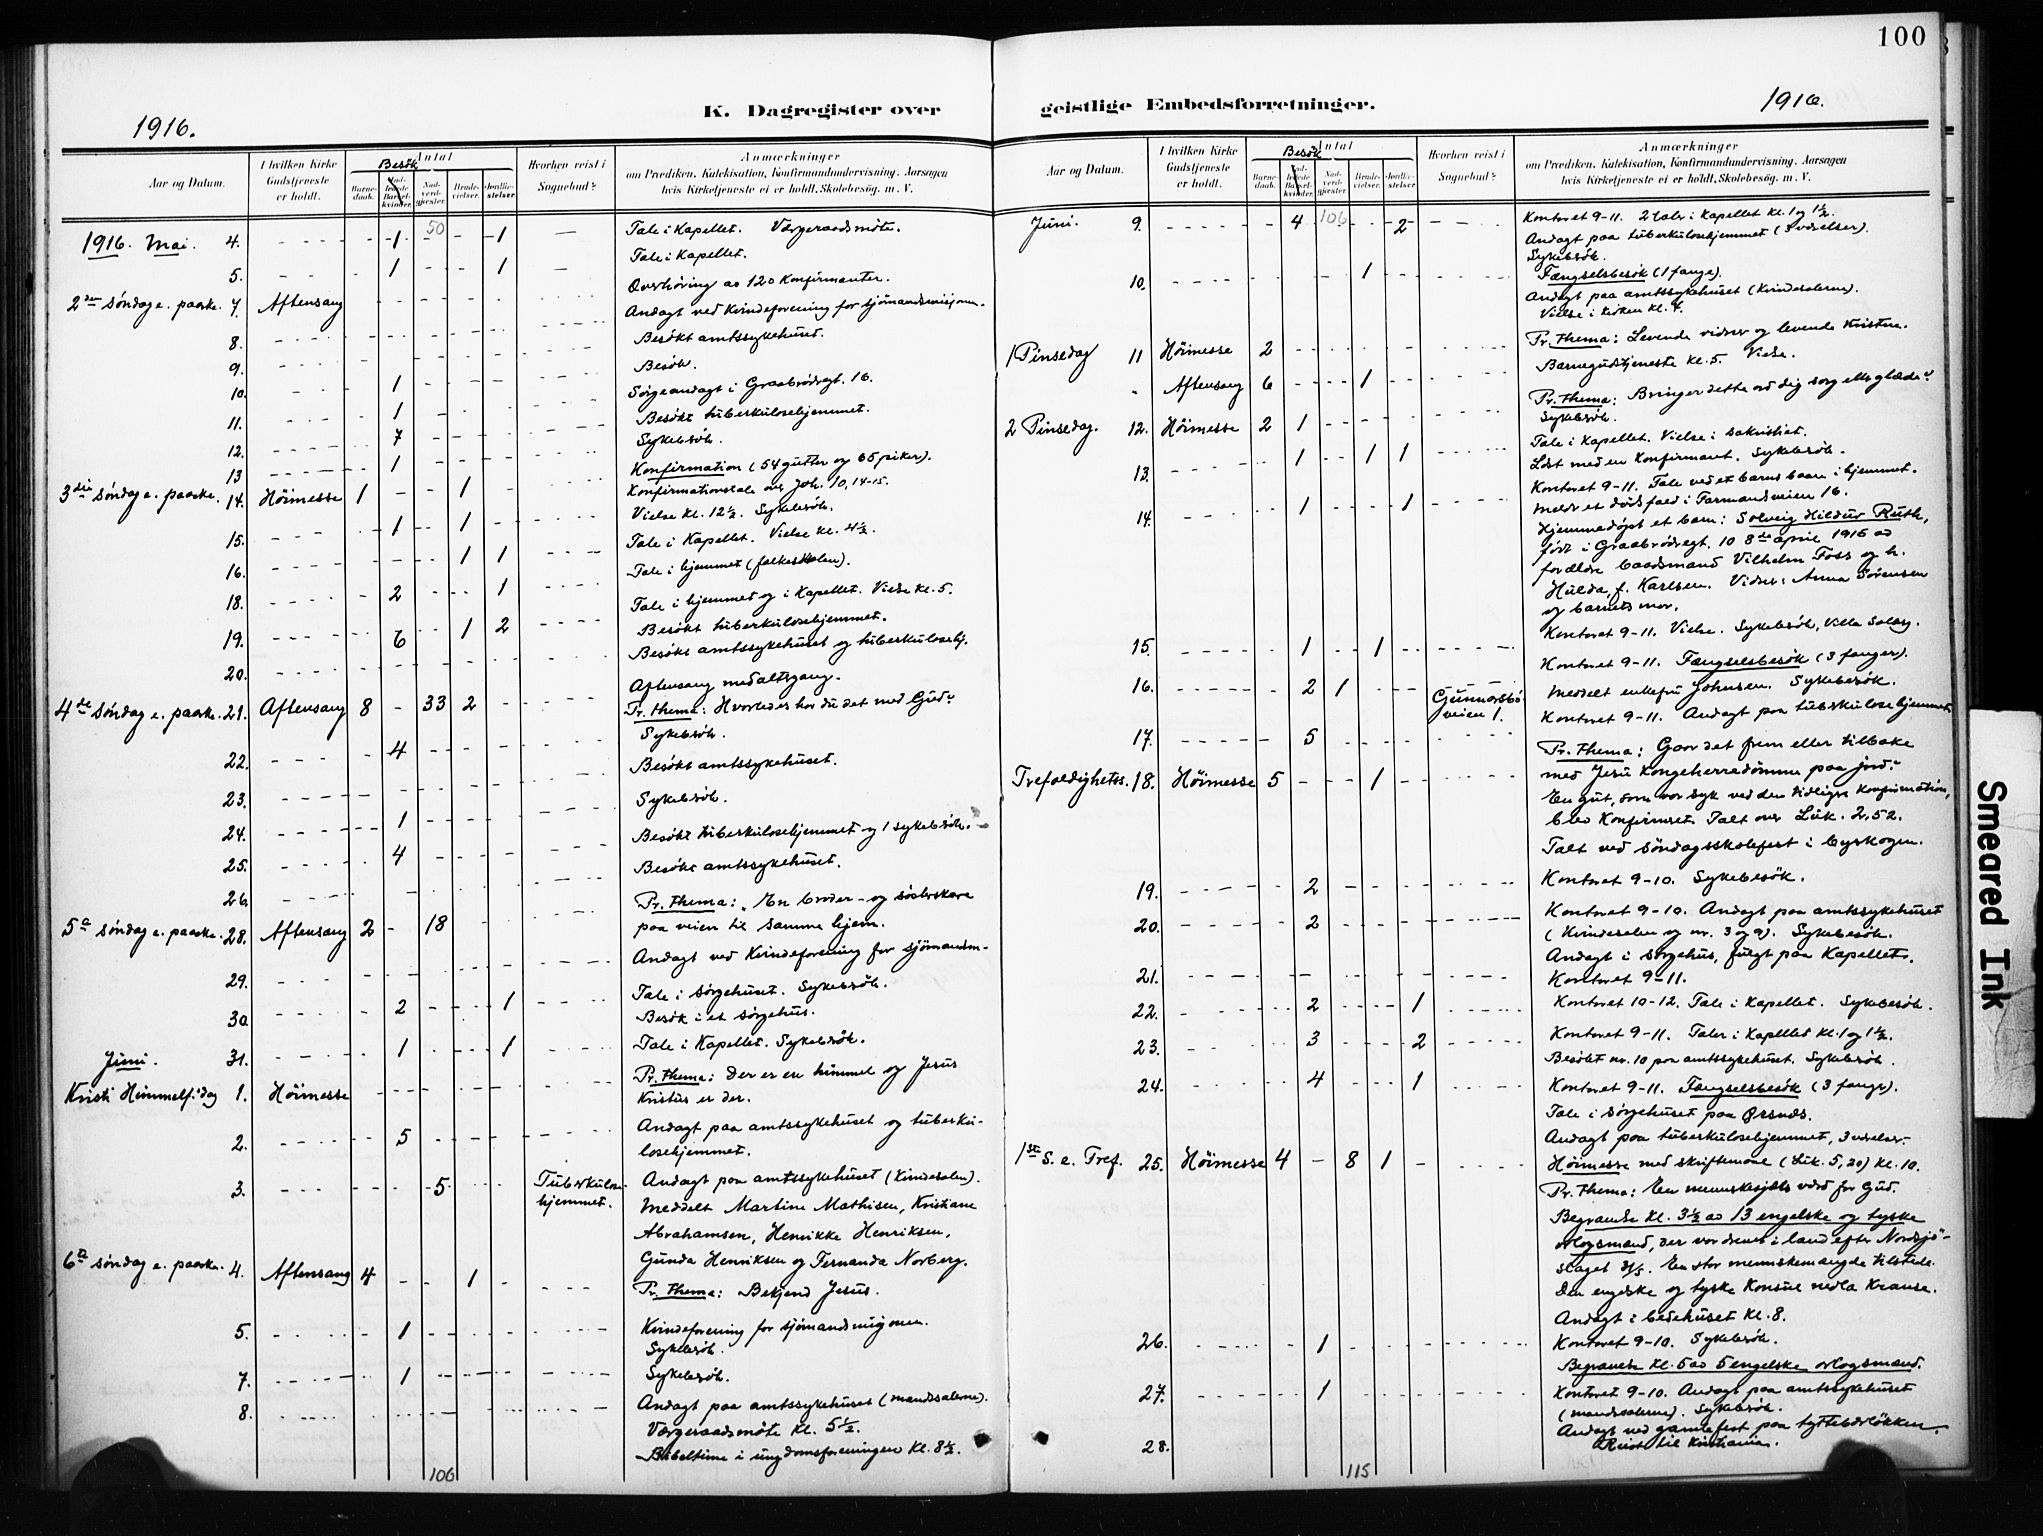 100
K. Dagregister over geistlige Embedsforretninger.
1916.
1916.
Aar og Datum.
I hvilken Kirke Gudstjeneste er holdt.
Antal
Besøk
Barnedaab.
Indledede Barselkvinder.
Nadverdgjester.
Brudevielser.
Jordfæstelser.
Hvorhen reist i Sognebud?
Anmærkninger
om Prædiken. Katekisation, Konfirmandundervisning. Aarsagen
hvis Kirketjeneste ei er holdt. Skolebesøg. m. V.
50
1916. Mai. 4. 1 1 Tale i Kapellet. Værgeraadsmøte.
5. 1 1 Tale i Kapellet.
Overhøring av 120 Konfirmanter.
2den søndag e. paaske. 7. Aftensang
Andagt ved Kvindeforening for sjømandsmisjonen.
8. Besøkt amtssykehuset.
9. Besøk.
10. 1 Sørgeandagt i Graabrødregt. 16.
11. 1 Besøkt tuberkulosehjemmet.
12. 7 Sykebesøk.
13 1 Konfirmation (54 gutter og 65 piker).
3die søndag e. paaske. 14. Høimesse 1 1 Konfirmationstale over Joh. 10,14-15.
Vielse kl. 12½. Sykebesøk.
15. 1 1 Tale i Kapellet. Vielse kl. 4½.
16. 1 1 Tale i hjemmet (folkeskolen).
18. 2 1 Tale i hjemmet og i Kapellet. Vielse kl. 5.
19. 6 1 2 Besøkt tuberkulosehjemmet.
Besøkt amtssykehuset og tuberkulosehj.
20.
Aftensang med altergang.
4de søndag e. paaske. 21. Aftensang 8 33 2 Pr. thema: Hvorledes har du det med Gud?
Sykebesøk.
22. 4 Besøkt amtssykehuset.
23. Sykebesøk.
24. 1 Besøkt tuberkulosehjemmet og 1 sykebesøk.
25. 4 Besøkt amtssykehuset.
26. Pr. thema: En broder- og søsterskare
5te søndag e. paaske. 28. Aftensang 2 18 paa veien til samme hjem.
Andagt ved Kvindeforening for sjømandsm-
29.
Tale i sørgehuset. Sykebesøk.
30. 2 1 Besøk i et sørgehus.
31. 1 1 Tale i Kapellet. Sykebesøk.
Juni.
Pr. thema: Der er en himmel og Jesus
Kristi Himmelf.dag 1. Høimesse Kristus er der.
2. 5 Andagt paa amtssykehuset og tuberku-
losehjemmet.
3. 5 Tuberkulose- hjemmet. Andagt paa amtssykehuset (Kvindesalen).
Meddelt Martine Mathisen, Kristiane
Abrahamsen, Henrikke Henriksen,
Gunda Henriksen og Fernanda Norberg.
6te søndag e. paaske. 4. Aftensang 4 1 Pr. thema: Bekjend Jesus.
5. 1 Kvindeforening for sjømandsmisjonen.
Sykebesøk.
7. 1 Sykebesøk.
8. Andagt paa amtssykehuset (mandssalerne).
Værgeraadsmøte kl. 5½.
Bibeltime i ungdomsforeningen kl. 8½.
106
Aar og Datum.
I hvilken Kirke Gudstjeneste er holdt.
Antal
Besøk
Barnedaab.
Indledede Barselkvinder.
Nadverdgjester.
Brudevielser.
Jordfæstelser.
Hvorhen reist i Sognebud?
Anmærkninger
om Prædiken. Katekisation, Konfirmandundervisning. Aarsagen
hvis Kirketjeneste ei er holdt. Skolebesøg. m. V.
Juni. 9. 4 106 2 Kontoret 9-11. 2 taler i Kapellet kl. 1 og 1½.
Andagt paa tuberkulosehjemmet (3 værelser).
Sykebesøk.
10. 1 Fængselsbesøk (1 fange).
Andagt paa amtssykehuset (Kvindesalerne).
Vielse i kirken kl. 4.
1 Pinsedag 11 Høimesse 2 Pr. thema: Levende vidner og levende Kristne.
Barnegudstjeneste kl. 5. Vielse.
" Aftensang 6 1
Pr. thema: Bringer dette ord dig sorg eller glæde?
2 Pinsedag. 12. Høimesse 2 1 Sykebesøk.
13. 1 1 1 Tale i Kapellet. Vielse i sakristiet.
Læst med en Konfirmant. Sykebesøk.
14. 1 1 Kontoret 9-11. Tale ved et barns baare i hjemmet.
Meldt et dødsfald i Tarmandsveien 16.
Hjemmedøpt et barn: Solveig Hildur Ruth,
født i Graabrødregt. 10 8de april 1916 av
forældre baadsmand Vilhelm Foss og h.
Hulda, f. Karlsen. Vidner: Anna Sørensen
og barnets mor.
15. 1 1 Kontoret 9-11. Vielse. Sykebesøk, Villa Solberg.
16. 2 1 Gunnarsbø- veien 1. Kontoret 9-11. Fængselsbesøk (3 fanger).
Meddelt enkefru Johnsen. Sykebesøk.
17. 5 Kontoret 9-11. Andagt paa tuberkulosehjemmet
Trefoldighetss. 18. Høimesse 5 1 Pr. thema: Gaar det frem eller tilbake
med Jesu Kongeherredømme paa jord?
En gut, som var syk ved den tidligere Konfirmation,
blev Konfirmeret. Talt over Luk. 2,52.
Talt ved søndagsskolefest i byskogen.
19. 2 Kontoret 9-10. Sykebesøk.
20. 2 Kontoret 9-10. Andagt paa amtssykehuset
(Kvindesalen og nr. 3 og 9). Sykebesøk.
21. Andagt i sørgehus, fulgt paa Kapellet.
Kontoret 9-11.
22. 2 1 Kontoret 10-12. Tale i Kapellet. Sykebesøk.
23. 3 2 Kontoret 9-11. Taler i Kapellet kl. 1 og 1½.
Besøkt nr. 10 paa amtssykehuset. Sykebesøk.
24. 4 1 Kontoret 9-11. Fængselsbesøk (3 fanger).
Tale i sørgehuset paa Ørsnes.
Andagt paa tuberkulosehjemmet, 3 værelser.
1ste S. e. Tref. 25. Høimesse 4 8 1 Høimesse med skriftemaal (Luk. 5,20) kl. 10.
Pr. thema: En menneskesjæls værd for Gud.
Begravelse kl. 3½ av 13 engelske og tyske
orlogsmænd, der var drevet i land efter Nordsjø-
slaget 31/5. En stor menneskemængde tilstede.
Den engelske og tyske Konsul nedla Kranse.
Andagt i bedehuset kl. 8.
26. 1 Kontoret 9-10. Sykebesøk.
Begravelse kl. 5 av 5 engelske orlogsmænd.
27. 1 Kontoret 9-10. Andagt paa amtssykehuset
(mandssalerne). Sykebesøk.
Andagt ved gamlefest paa tyttebærløkken.
28. Reist til Kristiania.
115
Smeared Ink